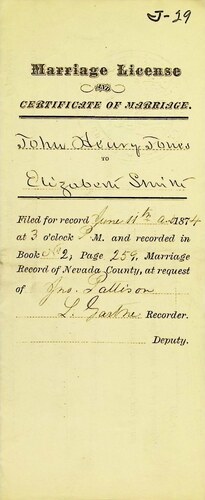 J-19
Marriage License
AND
CERTIFICATE OF MARRIAGE.
John Henry Jones
TO
Elizabeth Smith
Filed for record June 11th A.D. 1874
at 3 o'clock P M. and recorded in
Book No 2, Page 259, Marriage
Record of Nevada County, at request
of Jno. Pattison
L. Garthe Recorder.
Deputy.